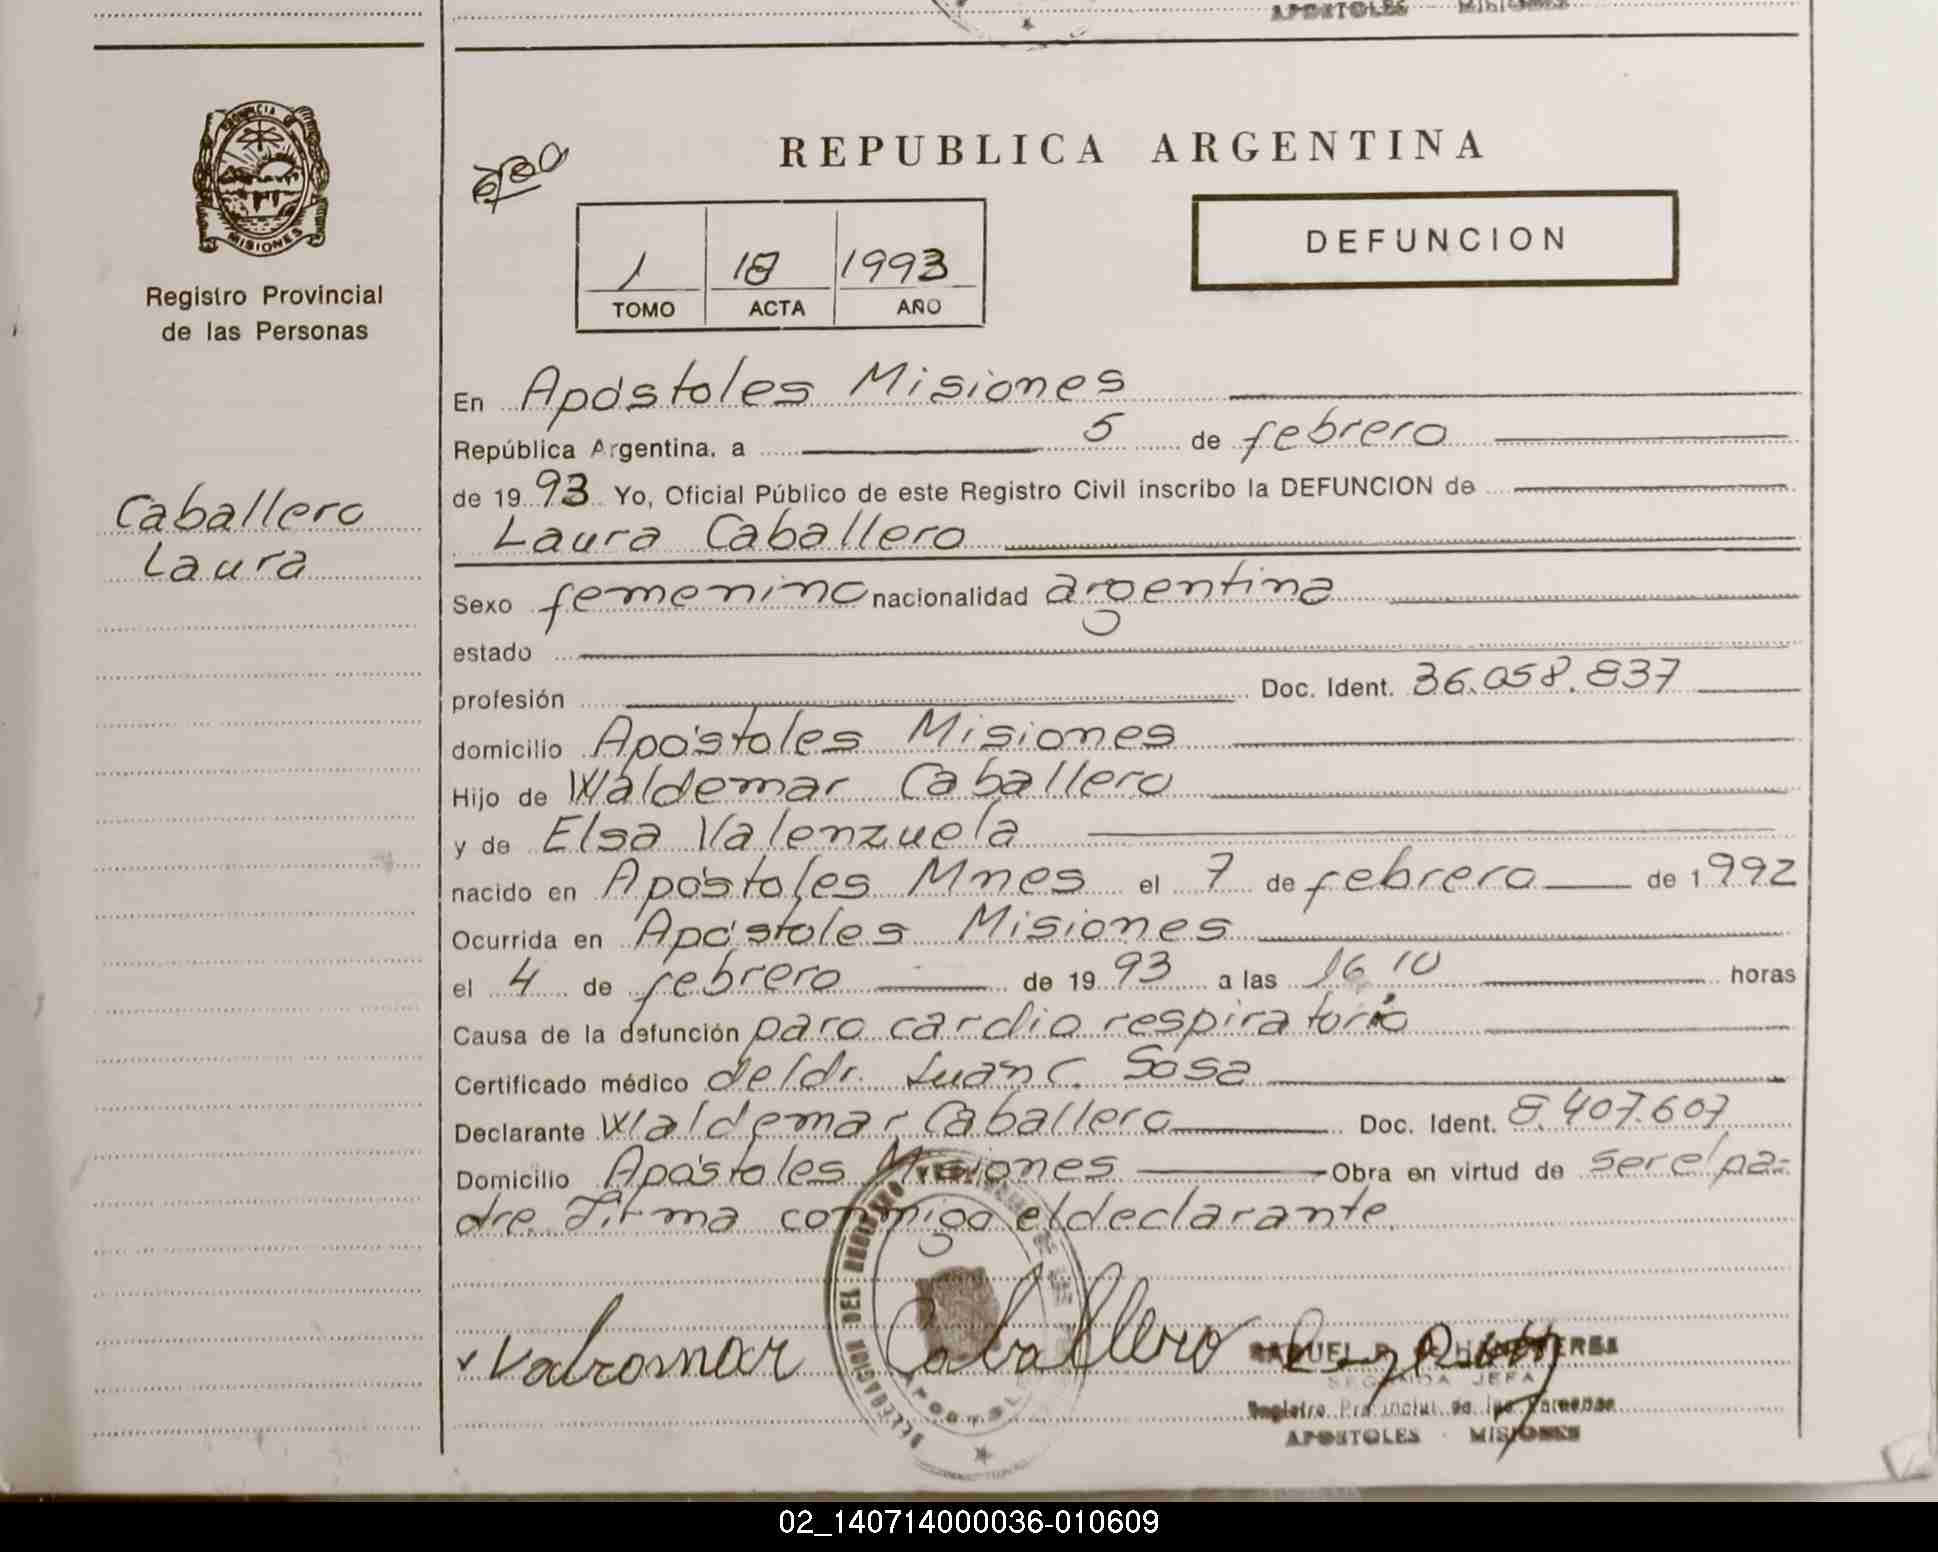 APOSTOLES MISIONES
PROVINCIA DE
MISIONES
Registro Provincial
de las Personas
REPUBLICA ARGENTINA
DEFUNCION
1 18 1993
TOMO ACTA AÑO
Caballero
Laura
En Apóstoles Misiones
República Argentina, a 5 de febrero
de 1993 Yo, Oficial Público de este Registro Civil inscribo la DEFUNCION de
Laura Caballero
Sexo femenino nacionalidad argentina
estado
profesión Doc. Ident. 36.058.837
domicilio Apóstoles Misiones
Hijo de Waldemar Caballero
y de Elsa Valenzuela
nacido en Apóstoles Mnes el 7 de febrero de 1992
Ocurrida en Apóstoles Misiones
el 4 de febrero de 1993 a las 16 10 horas
Causa de la defunción paro cardio respiratorio
Certificado médico del dr. Juan C. Sosa
Declarante Waldemar Caballero Doc. Ident. 8.407.607
Domicilio Apóstoles Misiones Obra en virtud de ser el pa-
dre. Firma conmigo el declarante.
DELEGACION DEL REGISTRO
Caballero
SEGUNDA JEFA
Registro Provincial de las Personas
APOSTOLES - MISIONES
02_140714000036-010609